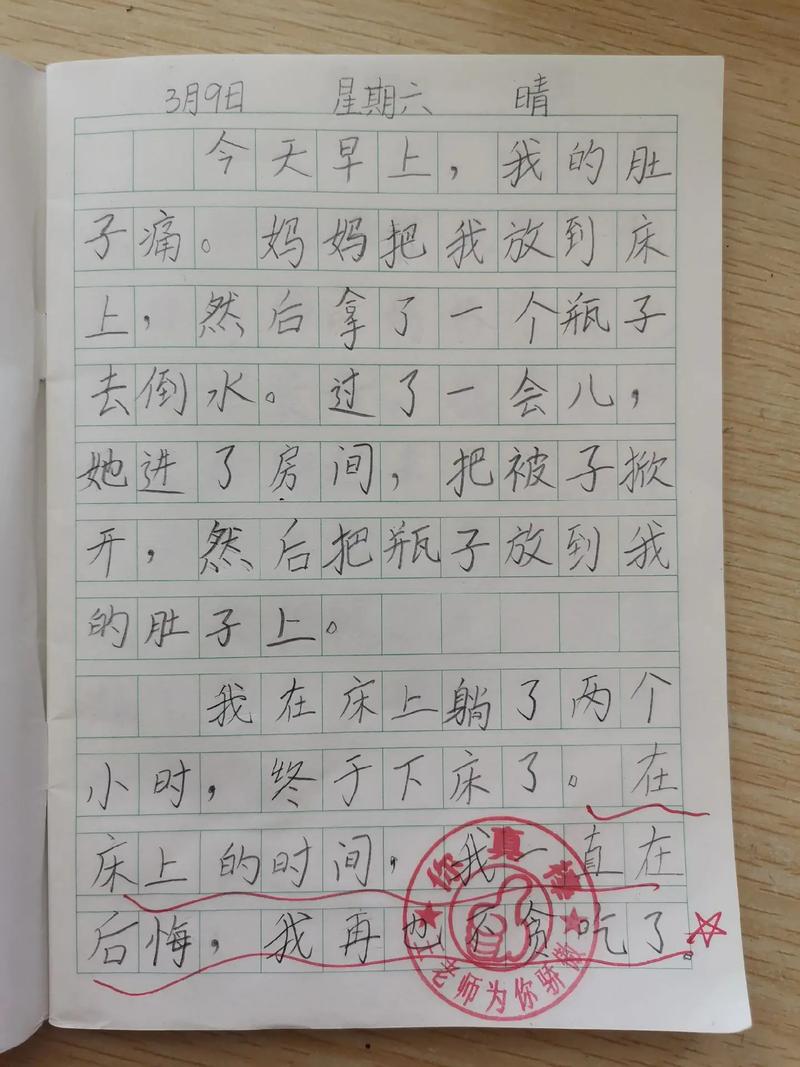 3月9日 星期六 晴
今天早上，我的肚
子痛。妈妈把我放到床
上，然后拿了一个瓶子
去倒水。过了一会儿，
她进了房间，把被子掀
开，然后把瓶子放到我
的肚子上。
我在床上躺了两个
小时，终于下床了。在
床上的时间，我一直在
后悔，我再也不贪吃了。
你真棒
老师为你骄傲